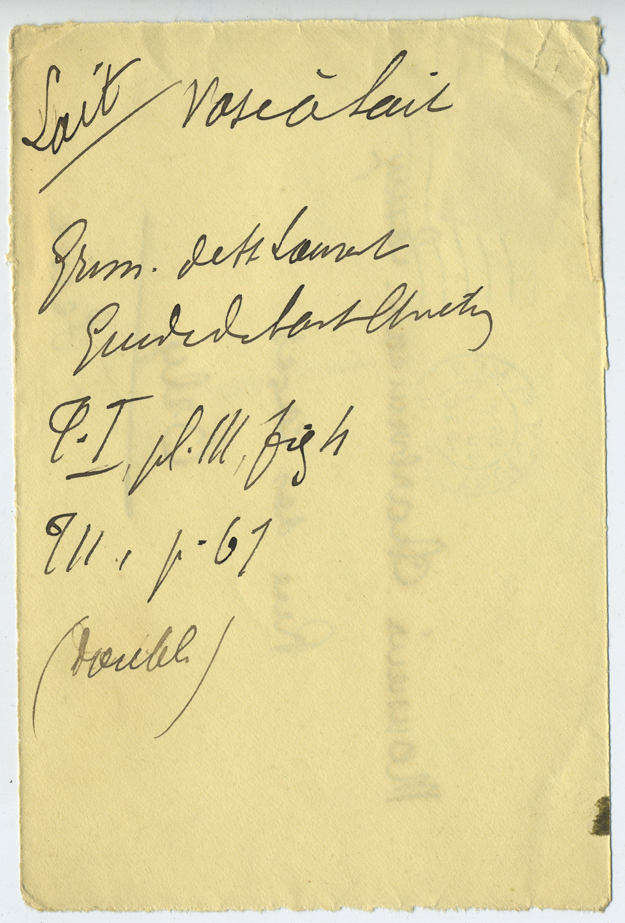 Lait / Vase à Lait
Grim. de St Laurent
Guide de l'art Chrétien
T. I, pl. III, fig 4
T II, p. 67
(Double)